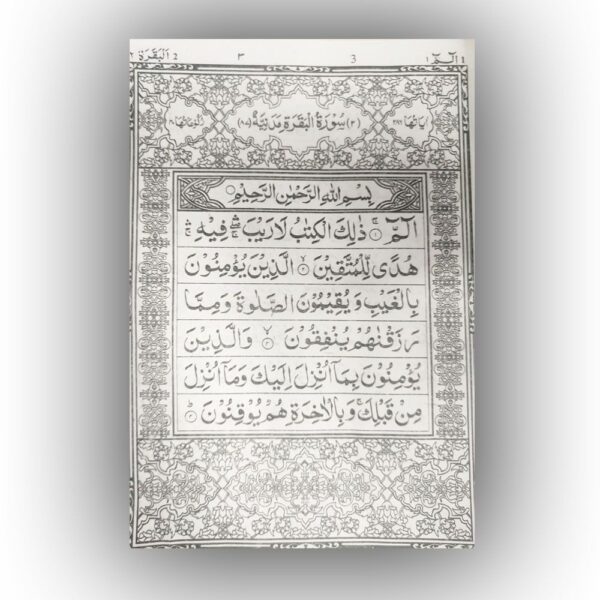 الٓمّٓ ١ 1 3 ٣ 2 اَلْبَقَرَة ٢
اٰيَاتُهَا ٢٨٦ (٢) سُوْرَةُ الْبَقَرَةِ مَدَنِيَّةٌ (٨٧) رُكُوْعَاتُهَا
بِسْمِ اللّٰهِ الرَّحْمٰنِ الرَّحِيْمِ
الٓمّٓ ۚ ١ ذٰلِكَ الْكِتٰبُ لَا رَيْبَ ۛ ۖ فِيْهِ ۛ ۚ
هُدًى لِّلْمُتَّقِيْنَ ۙ ٢ الَّذِيْنَ يُؤْمِنُوْنَ
بِالْغَيْبِ وَ يُقِيْمُوْنَ الصَّلٰوةَ وَ مِمَّا
رَزَقْنٰهُمْ يُنْفِقُوْنَ ۙ ٣ وَ الَّذِيْنَ
يُؤْمِنُوْنَ بِمَاۤ اُنْزِلَ اِلَيْكَ وَ مَاۤ اُنْزِلَ
مِنْ قَبْلِكَ ۚ وَ بِالْاٰخِرَةِ هُمْ يُوْقِنُوْنَ ؕ ٤